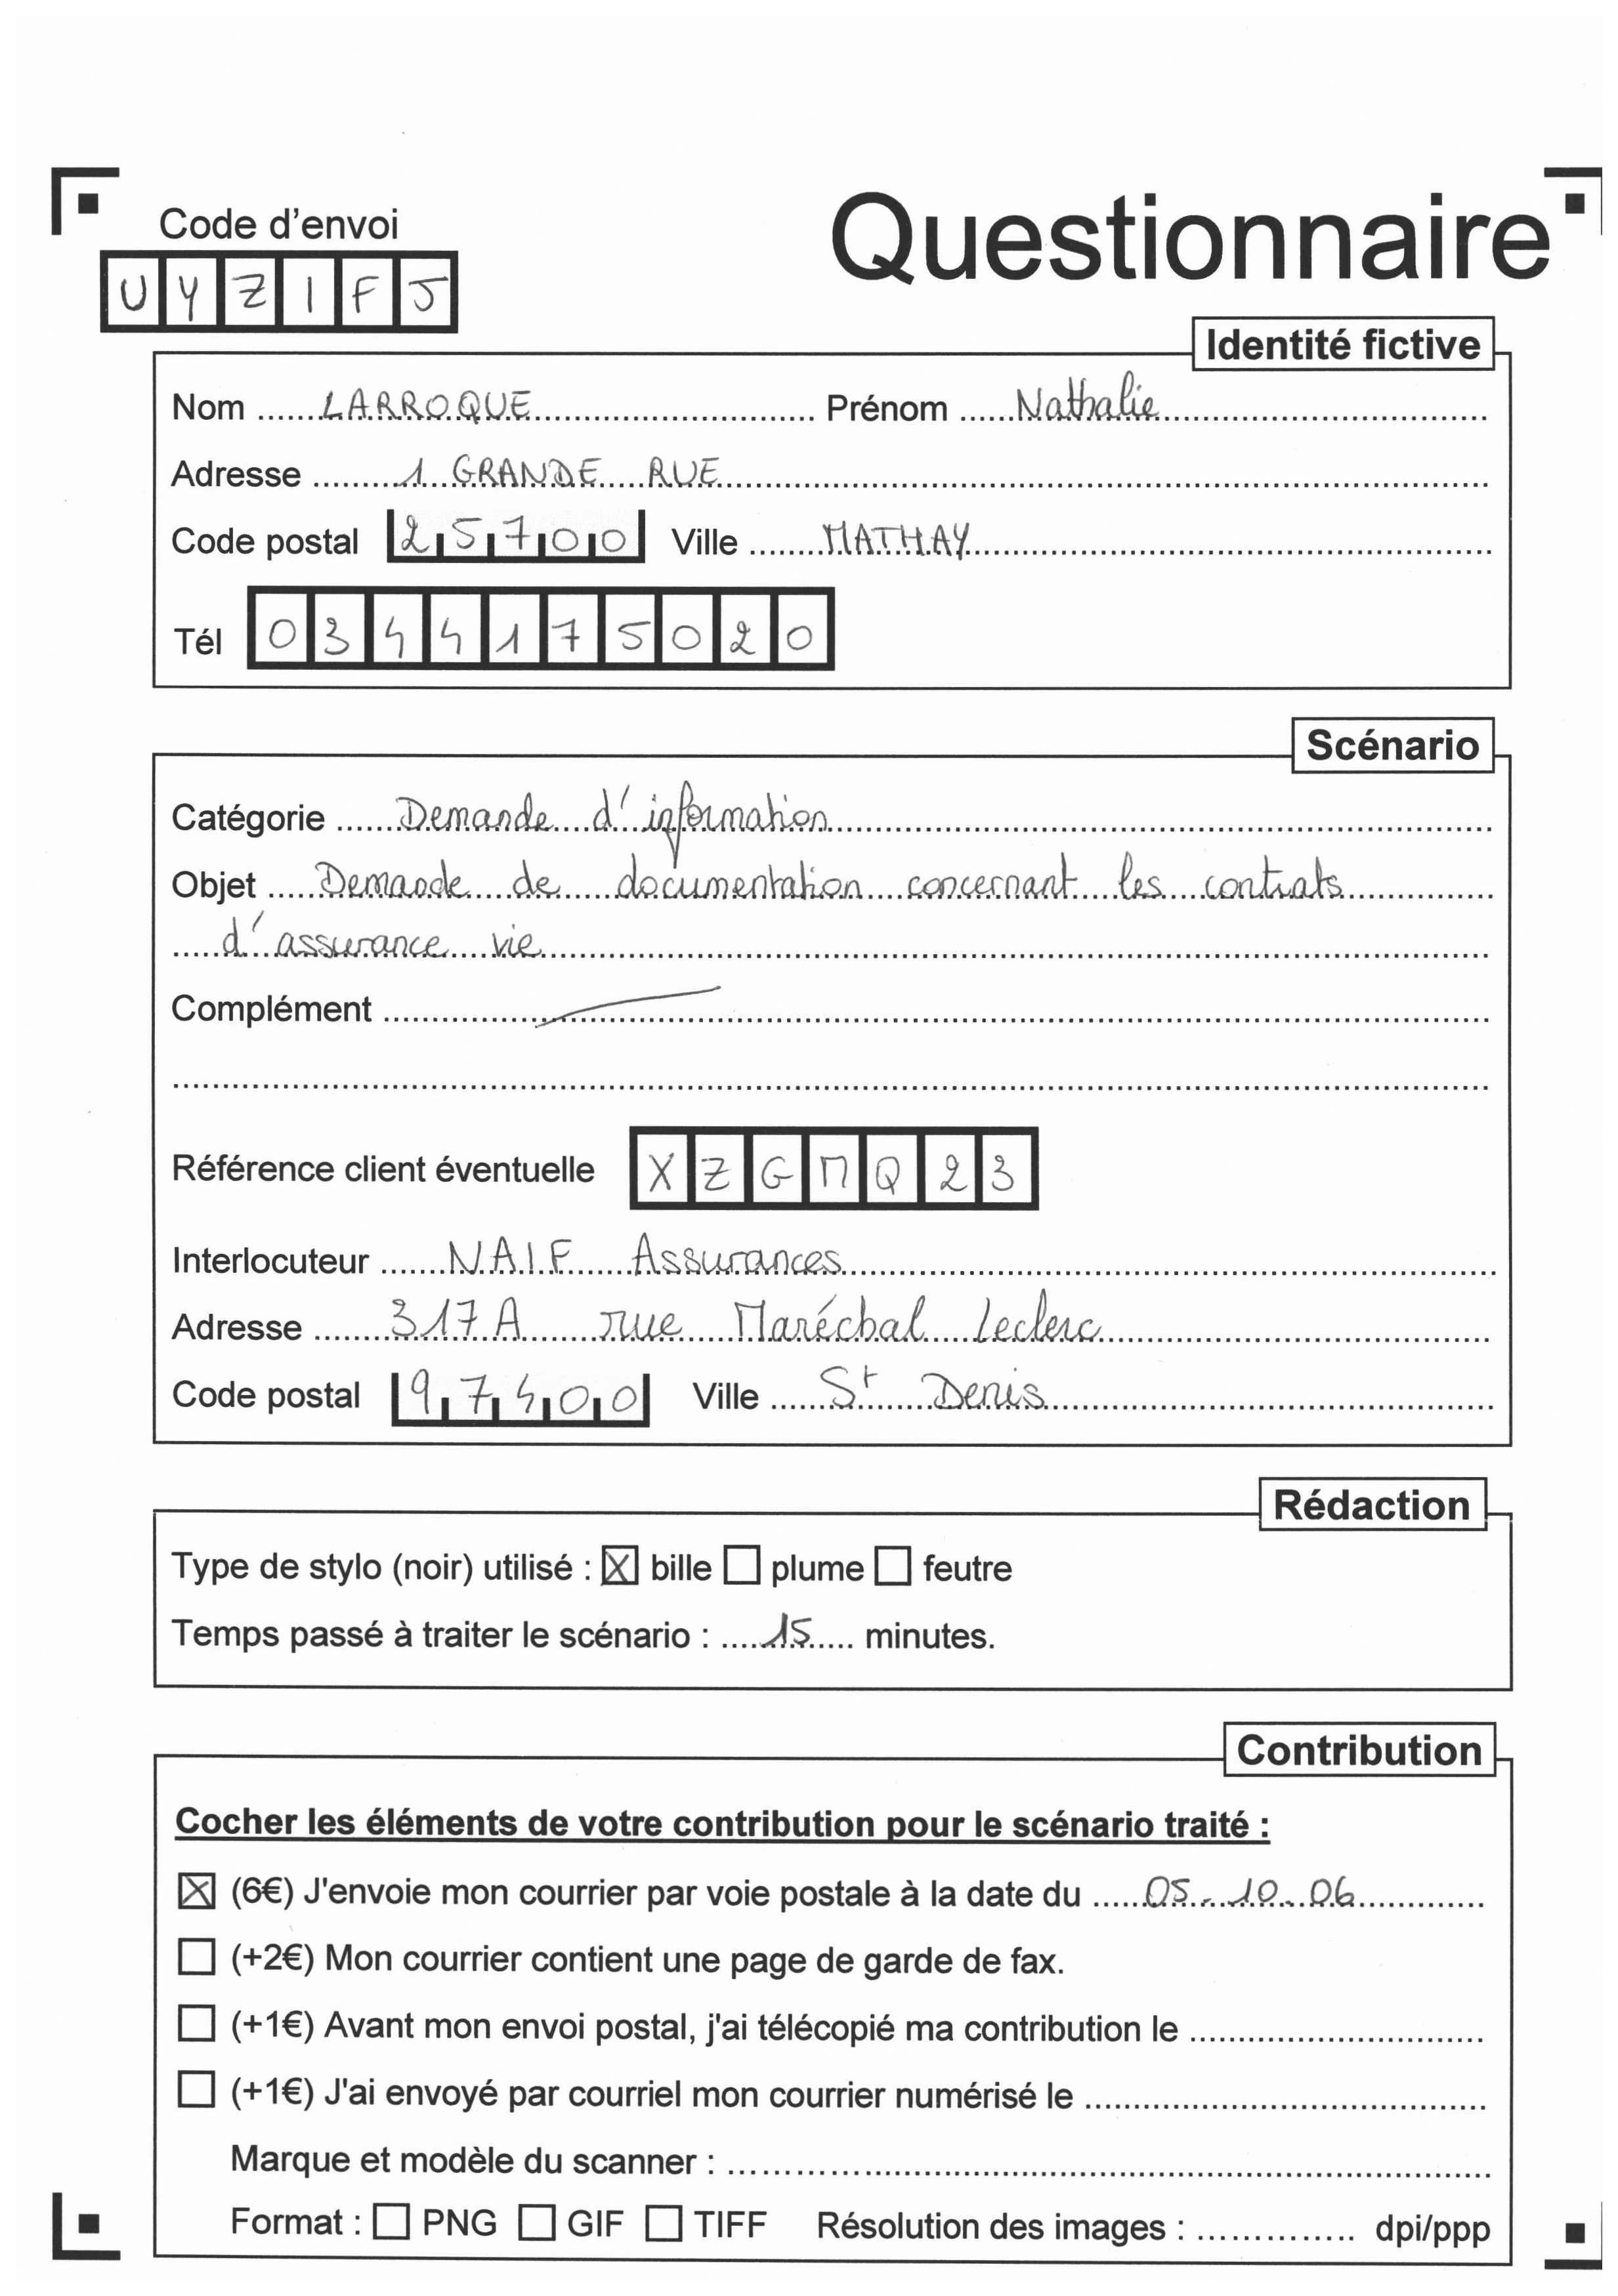 Code d'envoi
Questionnaire
UYZIFJ
Identité fictive
Nom ...... LARROQUE ...... Prénom ...... Nathalie ......
Adresse ...... 1 GRANDE RUE ......
Code postal 25700 Ville ...... MATHAY ......
Tél 0344175020
Scénario
Catégorie ...... Demande d'information ......
Objet ...... Demande de documentation concernant les contrats
d'assurance vie ......
Complément ......
Référence client éventuelle XZGMQ23
Interlocuteur ...... NAIF Assurances ......
Adresse ...... 317A rue Maréchal Leclerc ......
Code postal 97400 Ville ...... St Denis ......
Rédaction
Type de stylo (noir) utilisé : ☒ bille ☐ plume ☐ feutre
Temps passé à traiter le scénario : ...... 15 ...... minutes.
Contribution
Cocher les éléments de votre contribution pour le scénario traité :
☒ (6€) J'envoie mon courrier par voie postale à la date du ...... 05-10-06 ......
☐ (+2€) Mon courrier contient une page de garde de fax.
☐ (+1€) Avant mon envoi postal, j'ai télécopié ma contribution le ......
☐ (+1€) J'ai envoyé par courriel mon courrier numérisé le ......
Marque et modèle du scanner : ......
Format : ☐ PNG ☐ GIF ☐ TIFF Résolution des images : ...... dpi/ppp